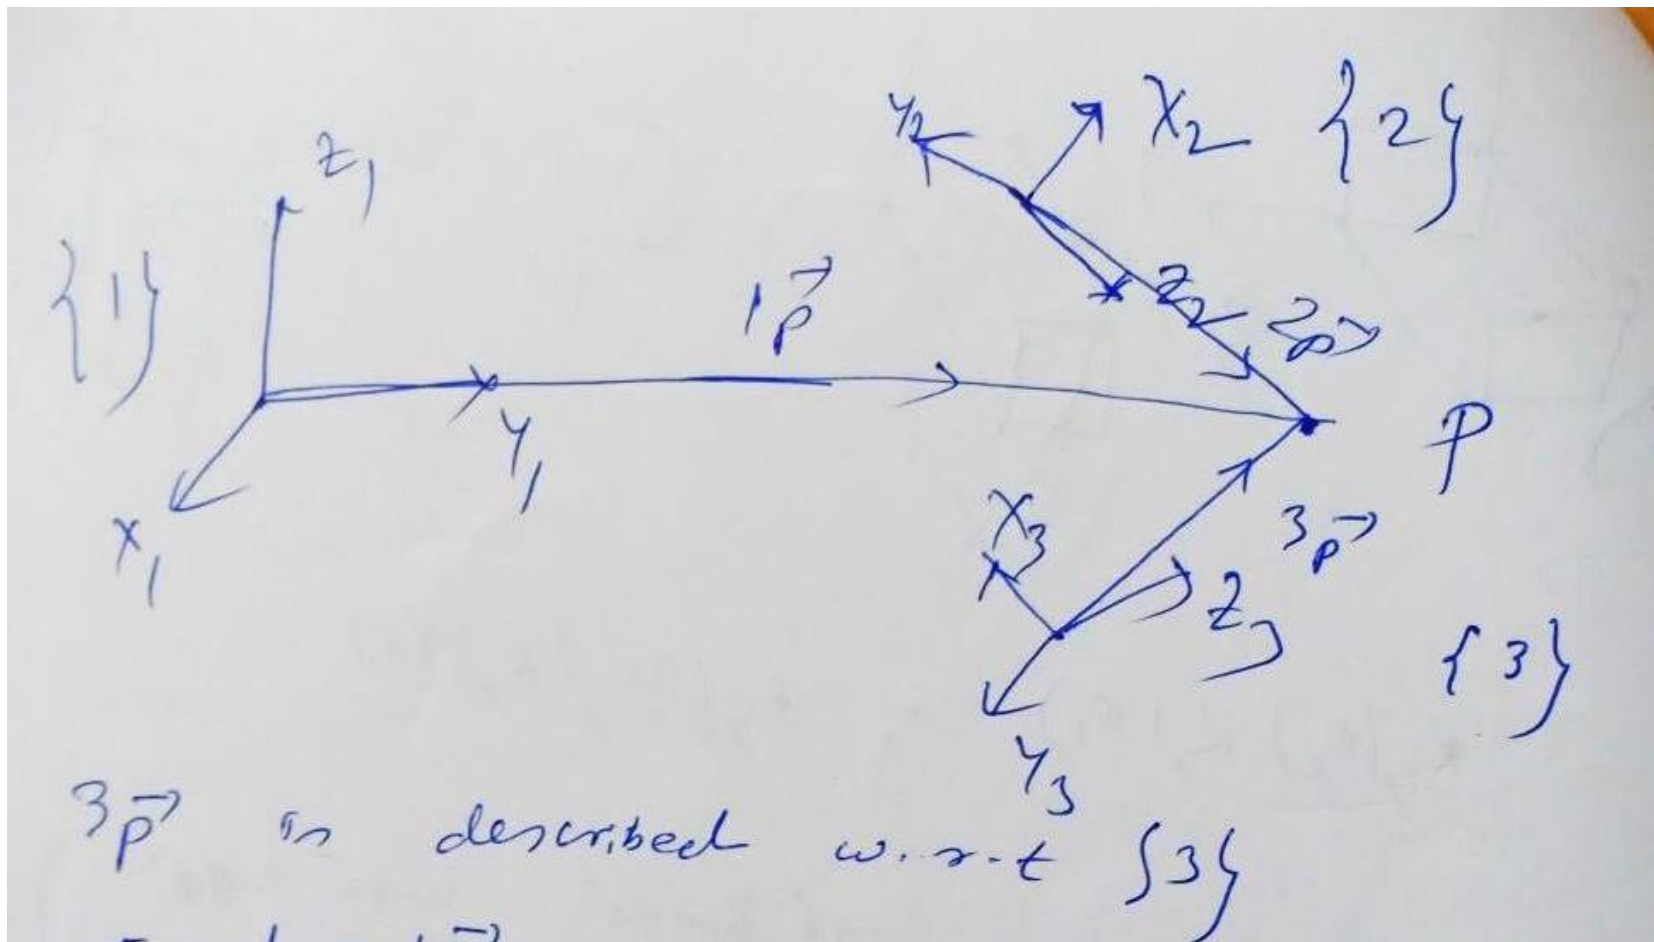 Z₁
{1}
X₁
Y₁
¹p⃗
Y₂
X₂ {2}
Z₂
²p⃗
P
X₃
³p⃗
Z₃
{3}
Y₃
³p⃗ is described w.r.t {3}